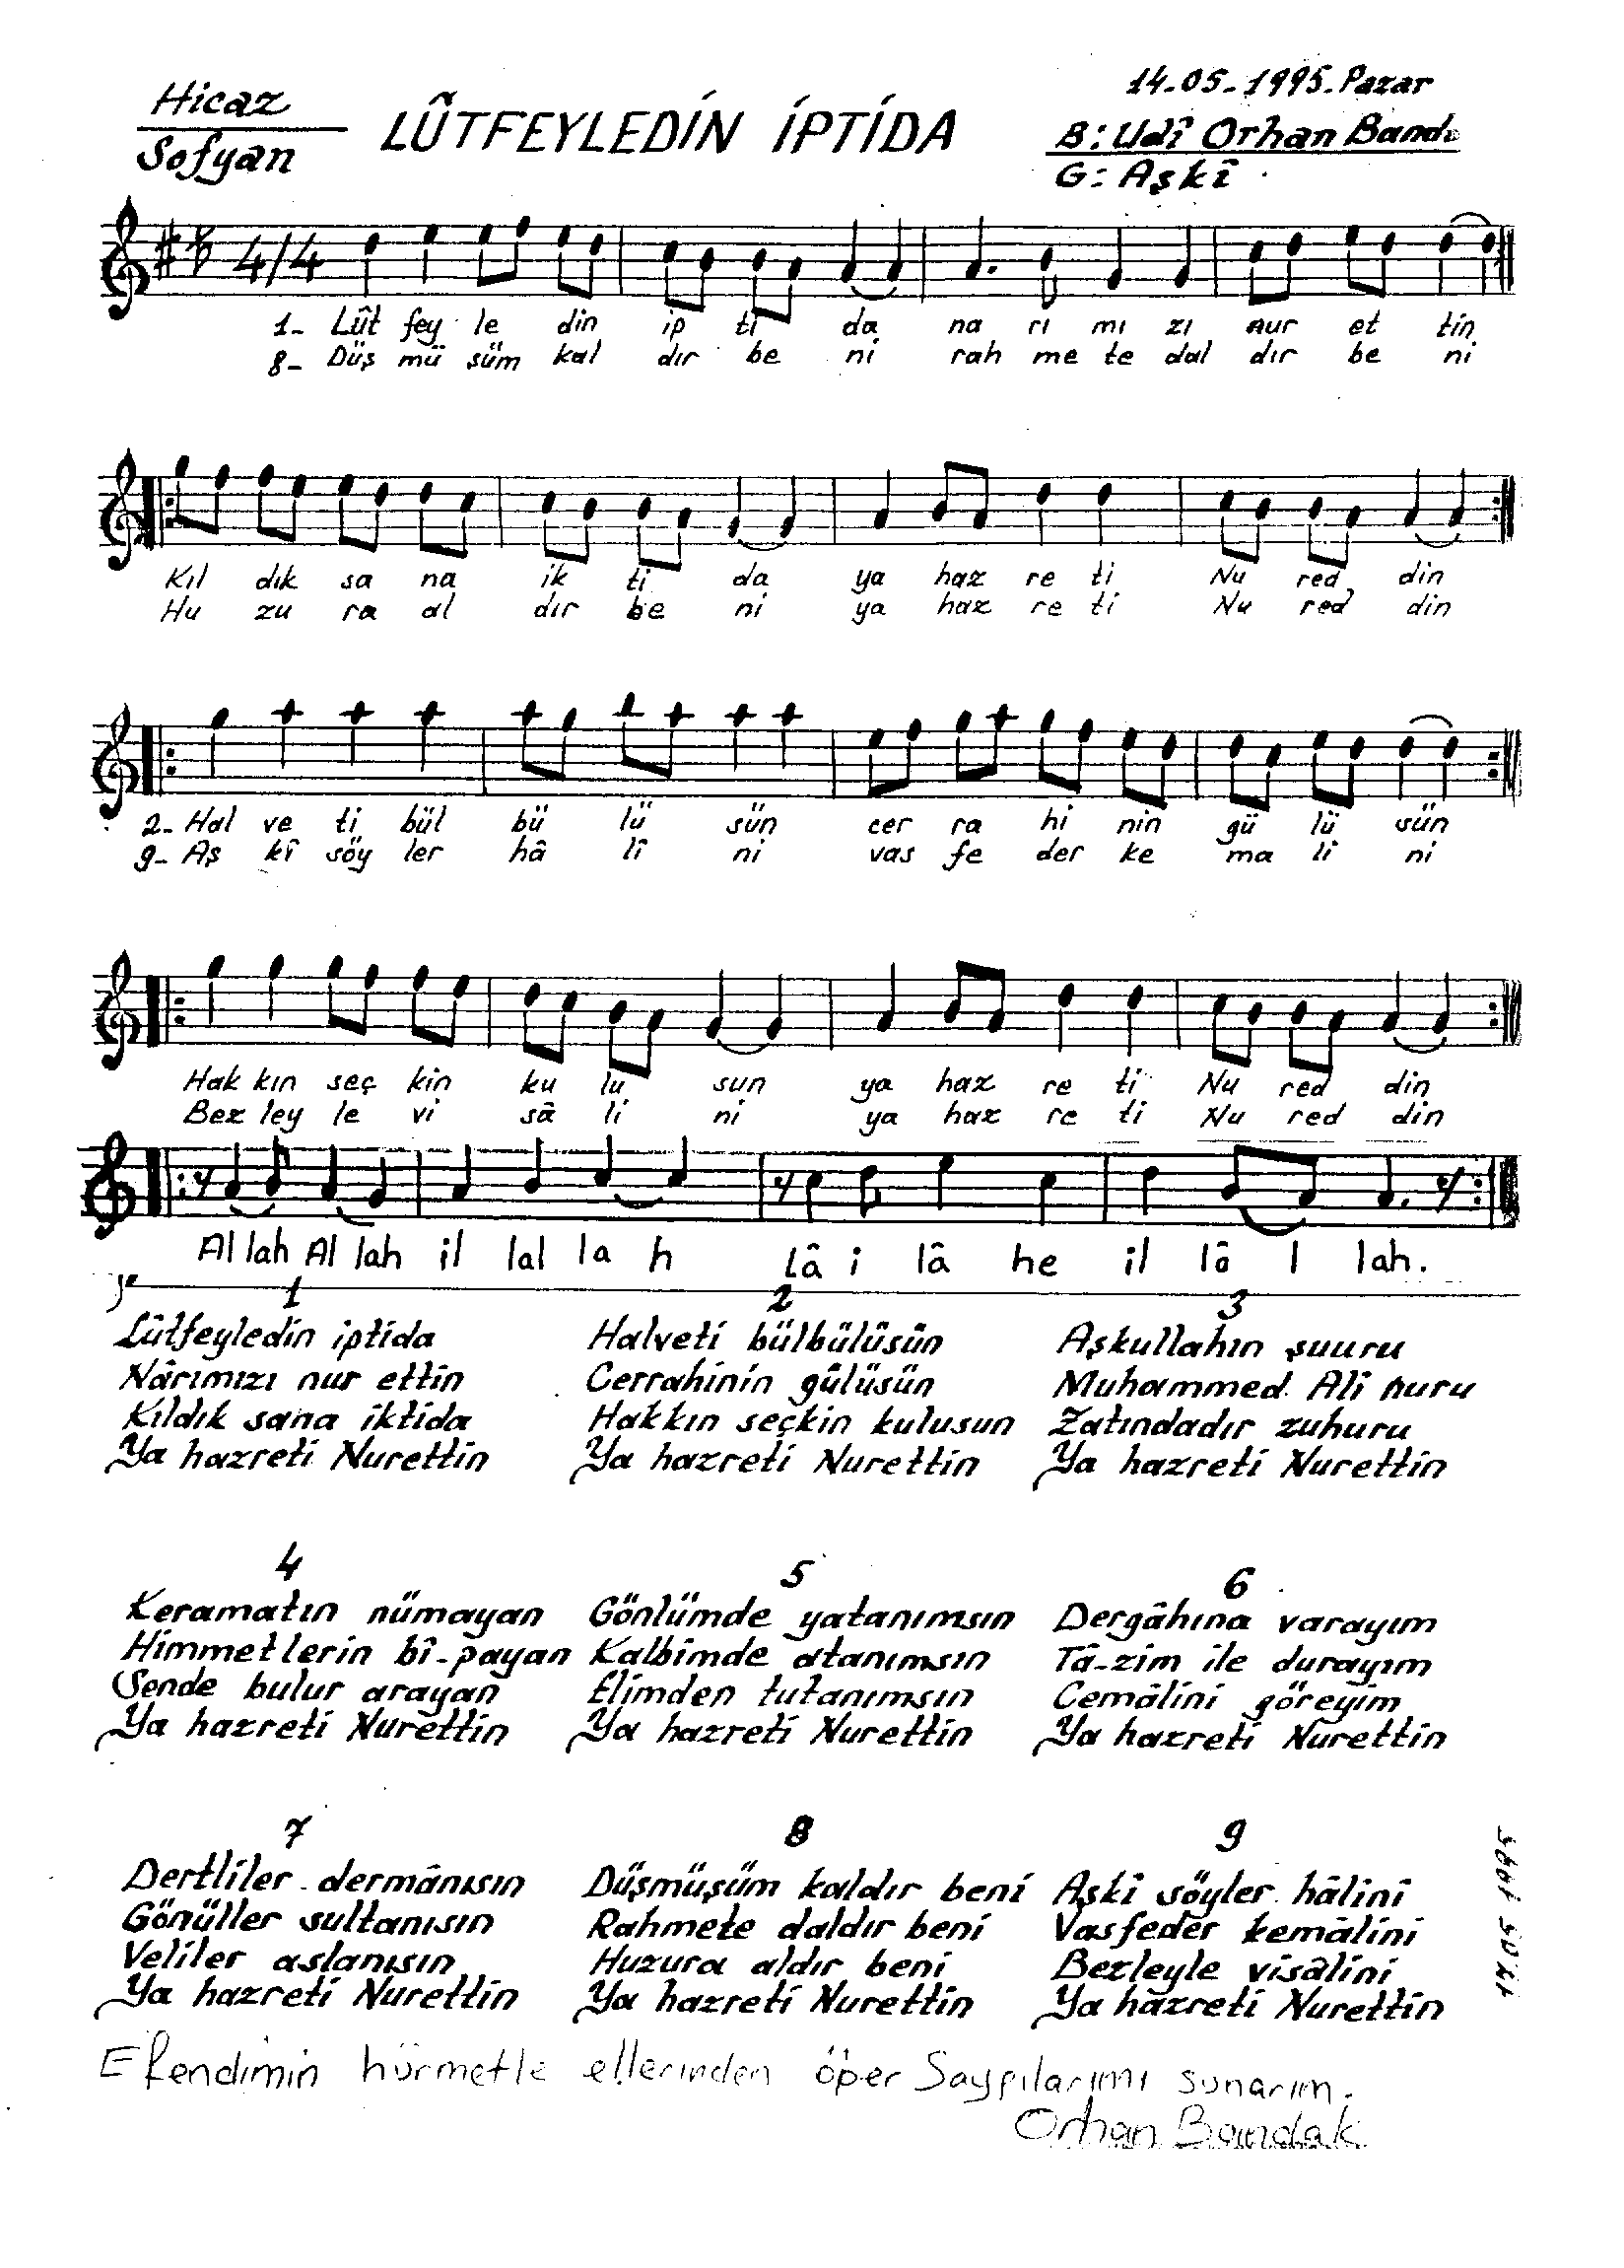 Hicaz
Sofyan
LÛTFEYLEDİN İPTİDA
14-05-1995-Pazar
B: Udî Orhan Band
G: Aşkî
4/4
1- Lût fey le din ip ti da na rı mı zı nur et tin
8- Düş mü şüm kal dır be ni rah me te dal dır be ni
Kıl dık sa na ik ti da ya haz re ti Nu red din
Hu zu ra al dır be ni ya haz re ti Nu red din
2- Hal ve ti bül bü lü sün cer ra hi nin gü lü sün
9- Aş kî söy ler hâ lî ni vas fe der ke ma li ni
Hak kın seç kin ku lu sun ya haz re ti Nu red din
Bez ley le vi sâ li ni ya haz re ti Nu red din
Al lah Al lah il lal la h lâ i lâ he il lâ l lah.
1
Lûtfeyledin iptida
Nârımızı nur ettin
Kıldık sana iktida
Ya hazreti Nurettin
2
Halveti bülbülüsün
Cerrahinin gülüsün
Hakkın seçkin kulusun
Ya hazreti Nurettin
3
Aşkullahın şuuru
Muhammed Alî nuru
Zatındadır zuhuru
Ya hazreti Nurettin
4
Keramatın nümayan
Himmetlerin bî-payan
Sende bulur arayan
Ya hazreti Nurettin
5
Gönlümde yatanımsın
Kalbimde atanımsın
Elimden tutanımsın
Ya hazreti Nurettin
6
Dergâhına varayım
Tâ-zim ile durayım
Cemâlini göreyim
Ya hazreti Nurettin
7
Dertliler dermânısın
Gönüller sultanısın
Veliler aslanısın
Ya hazreti Nurettin
8
Düşmüşüm kaldır beni
Rahmete daldır beni
Huzura aldır beni
Ya hazreti Nurettin
9
Aşkî söyler hâlinî
Vasfeder kemâlini
Bezleyle visâlini
Ya hazreti Nurettin
Efendimin hürmetle ellerinden öper Saygılarımı sunarım.
Orhan Bandak